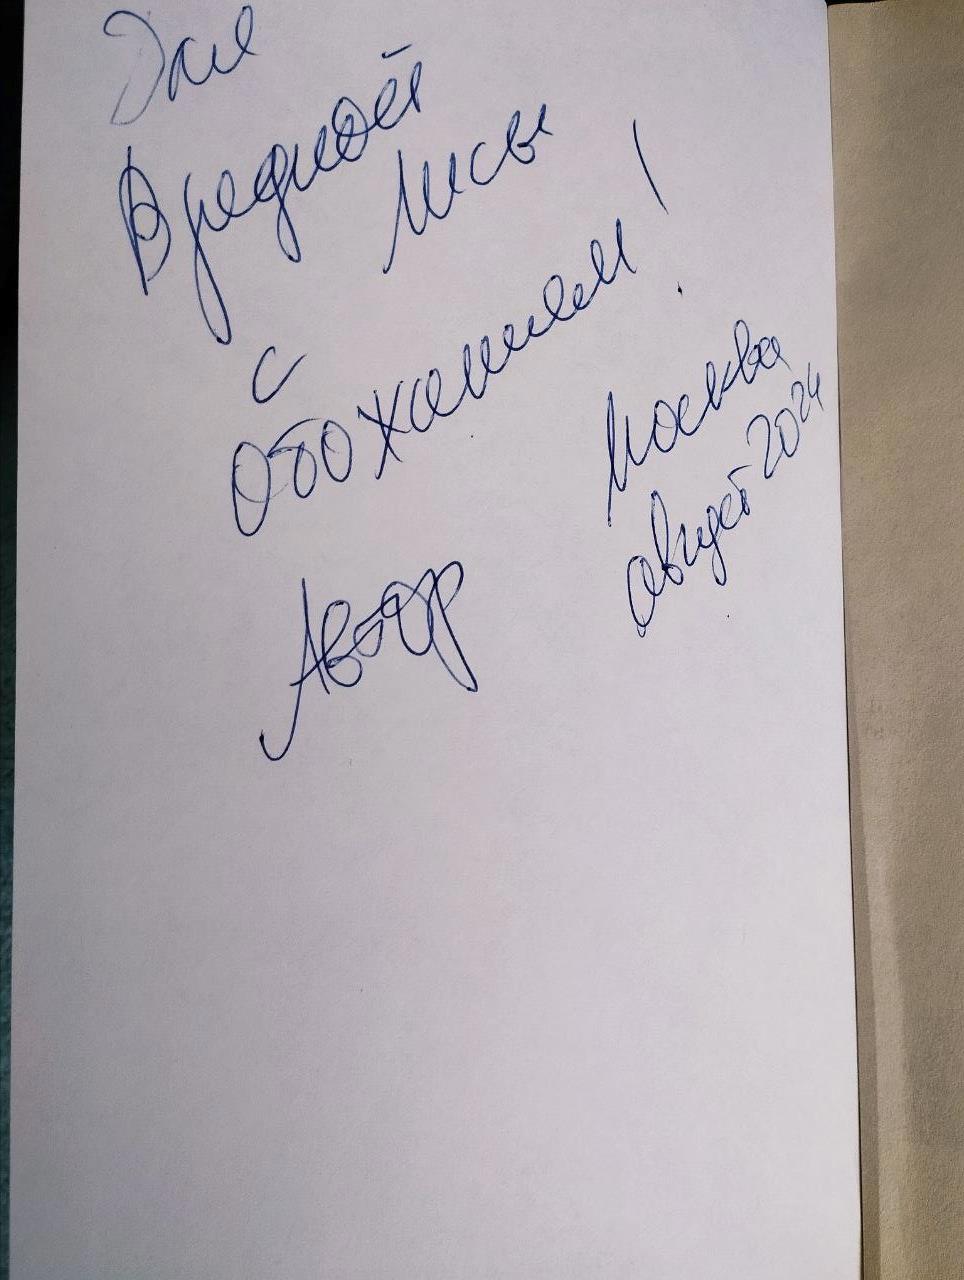 Для
Вредной
Лисы
с
Обожанием!
Автор
Москва
август 2024